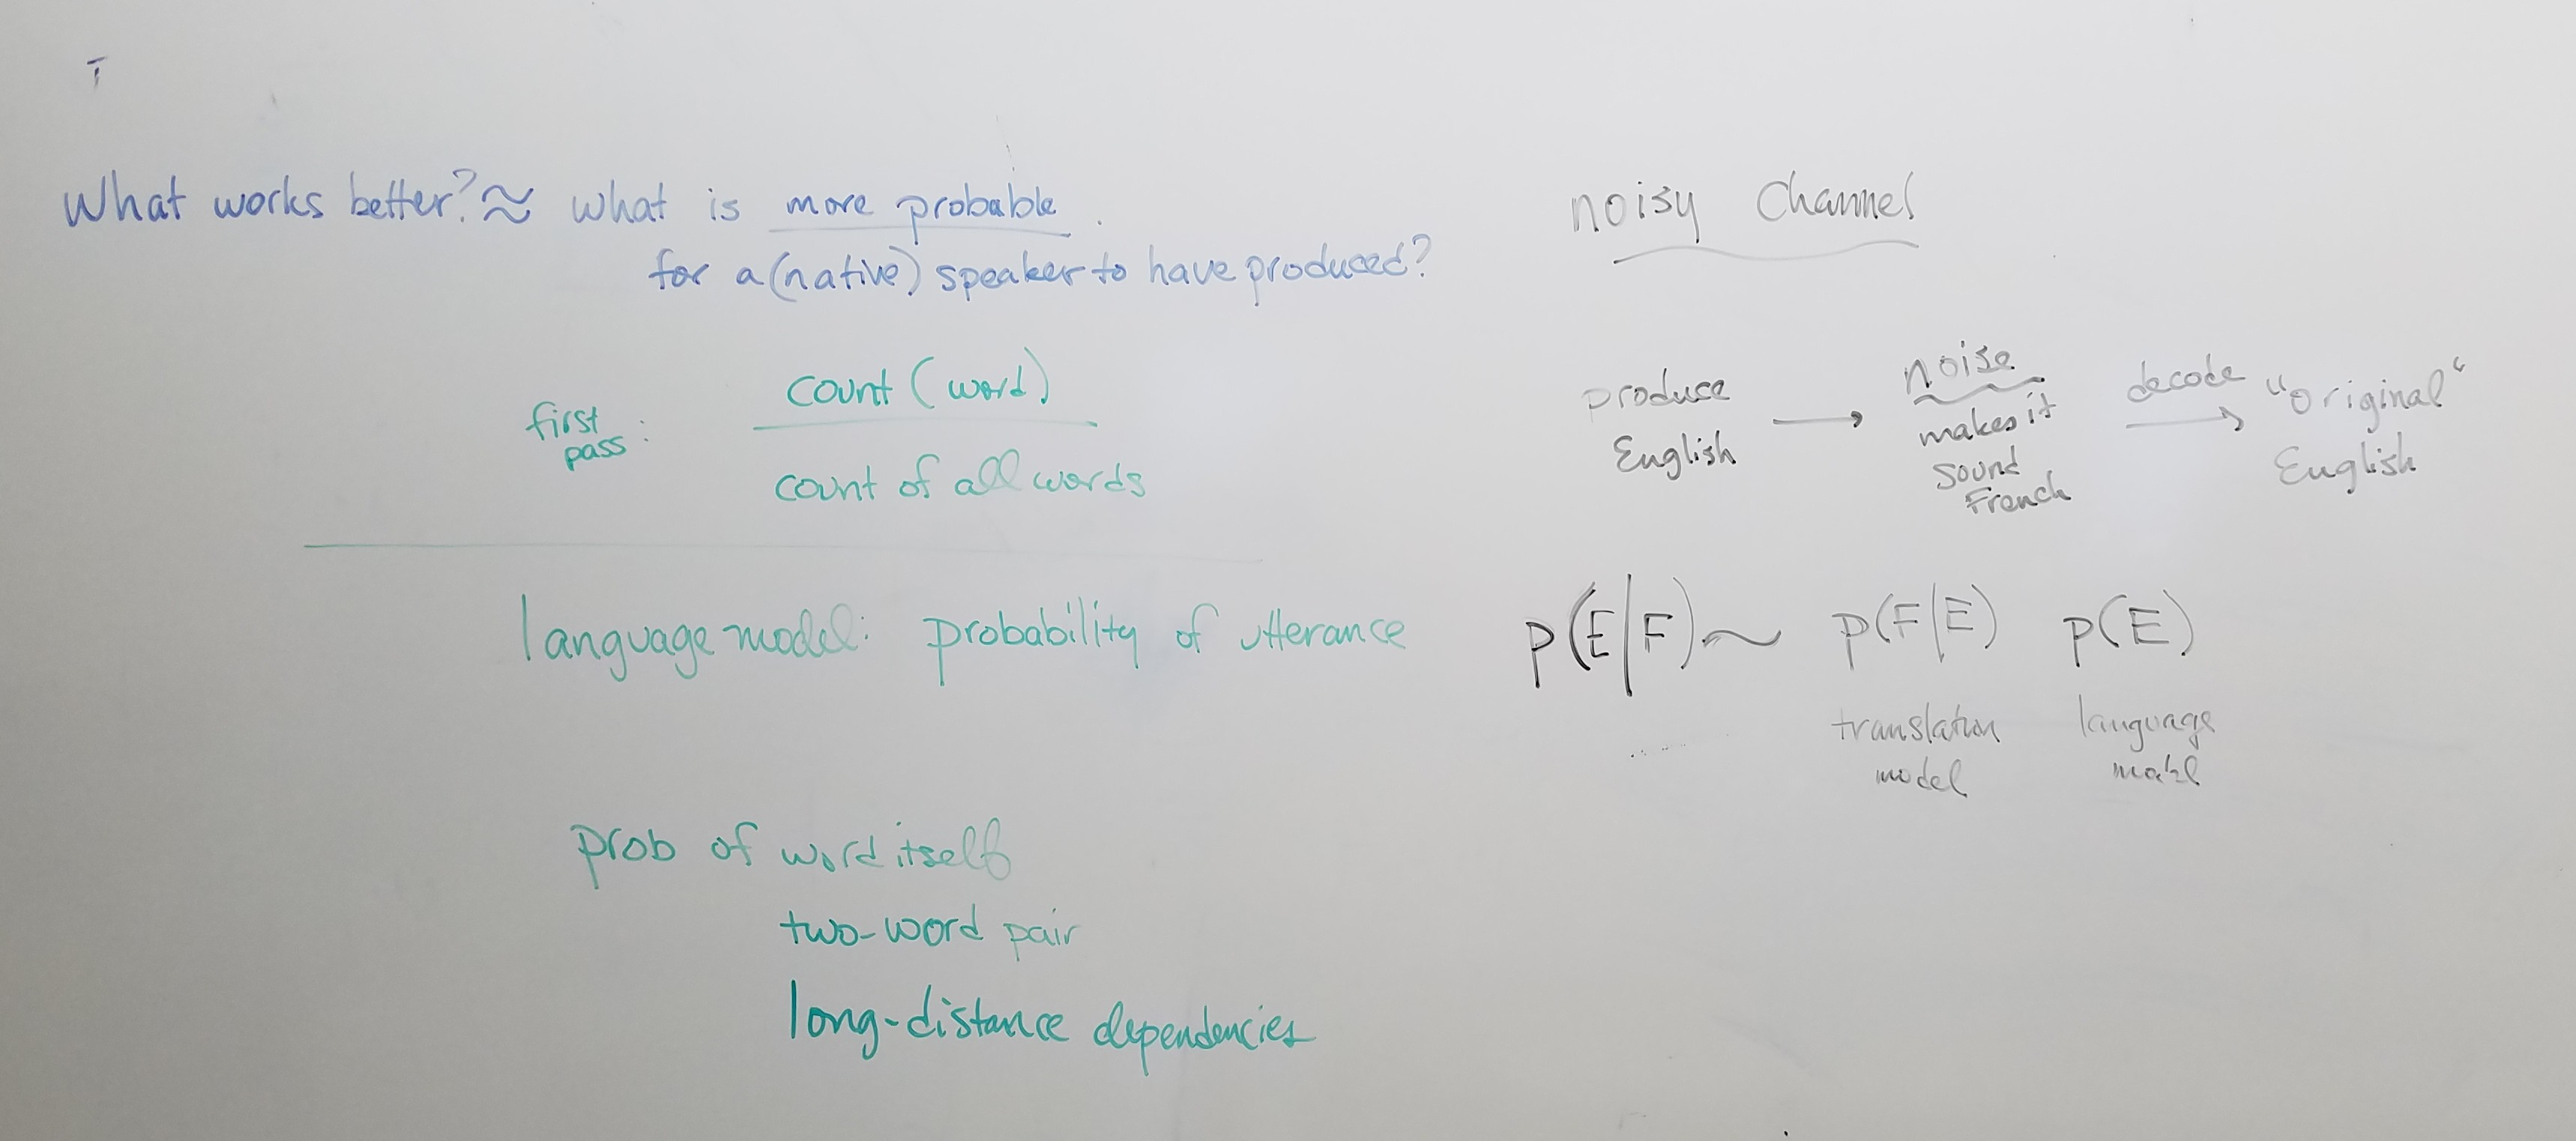 What works better? ≈ what is more probable
for a (native) speaker to have produced?
first pass:
count (word)
count of all words
language model: probability of utterance
prob of word itself
two-word pair
long-distance dependencies
noisy Channel
produce English → noise makes it sound French decode → "original" English
P(E|F) ~ P(F|E) P(E)
translation model
language model